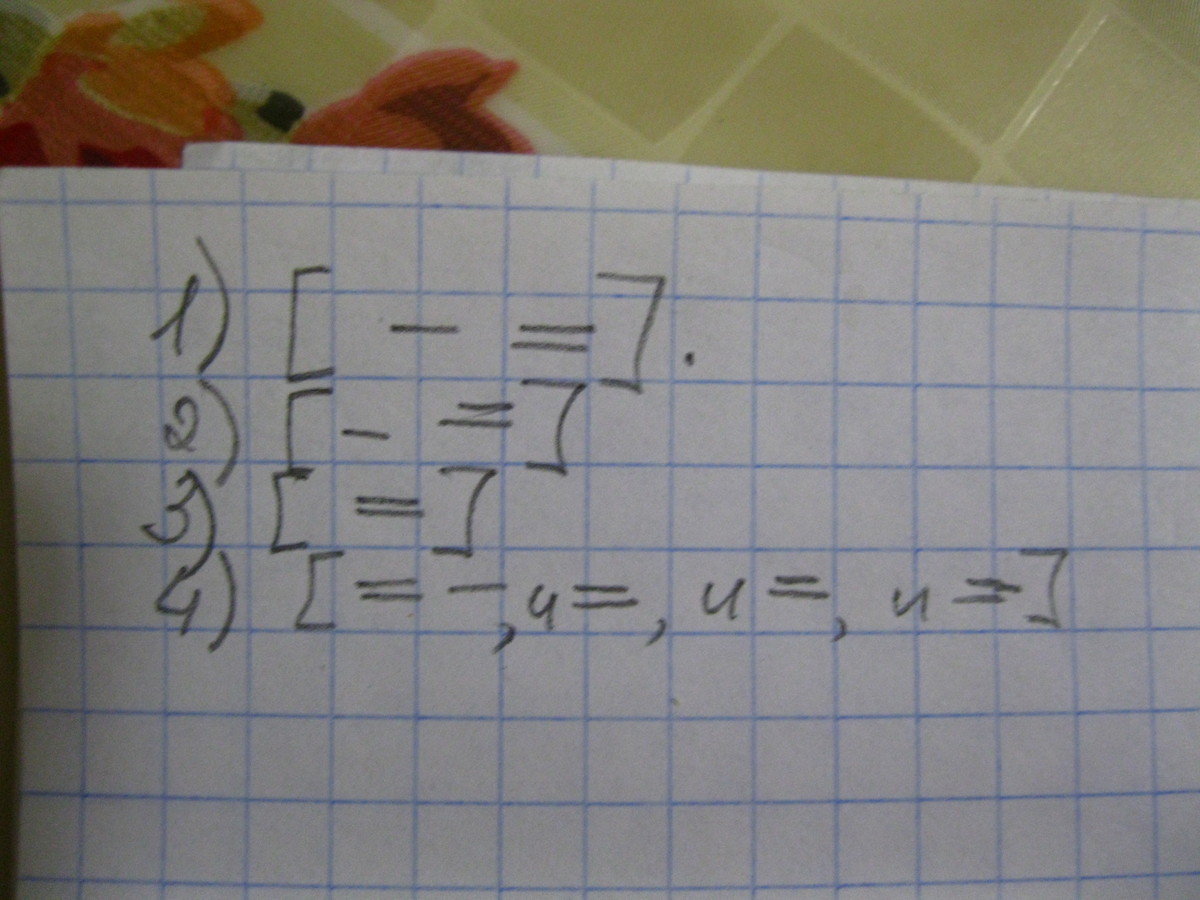 1) [ — = ].
2) [ – = ]
3) [ = ]
4) [ = –, и =, и =, и = ]